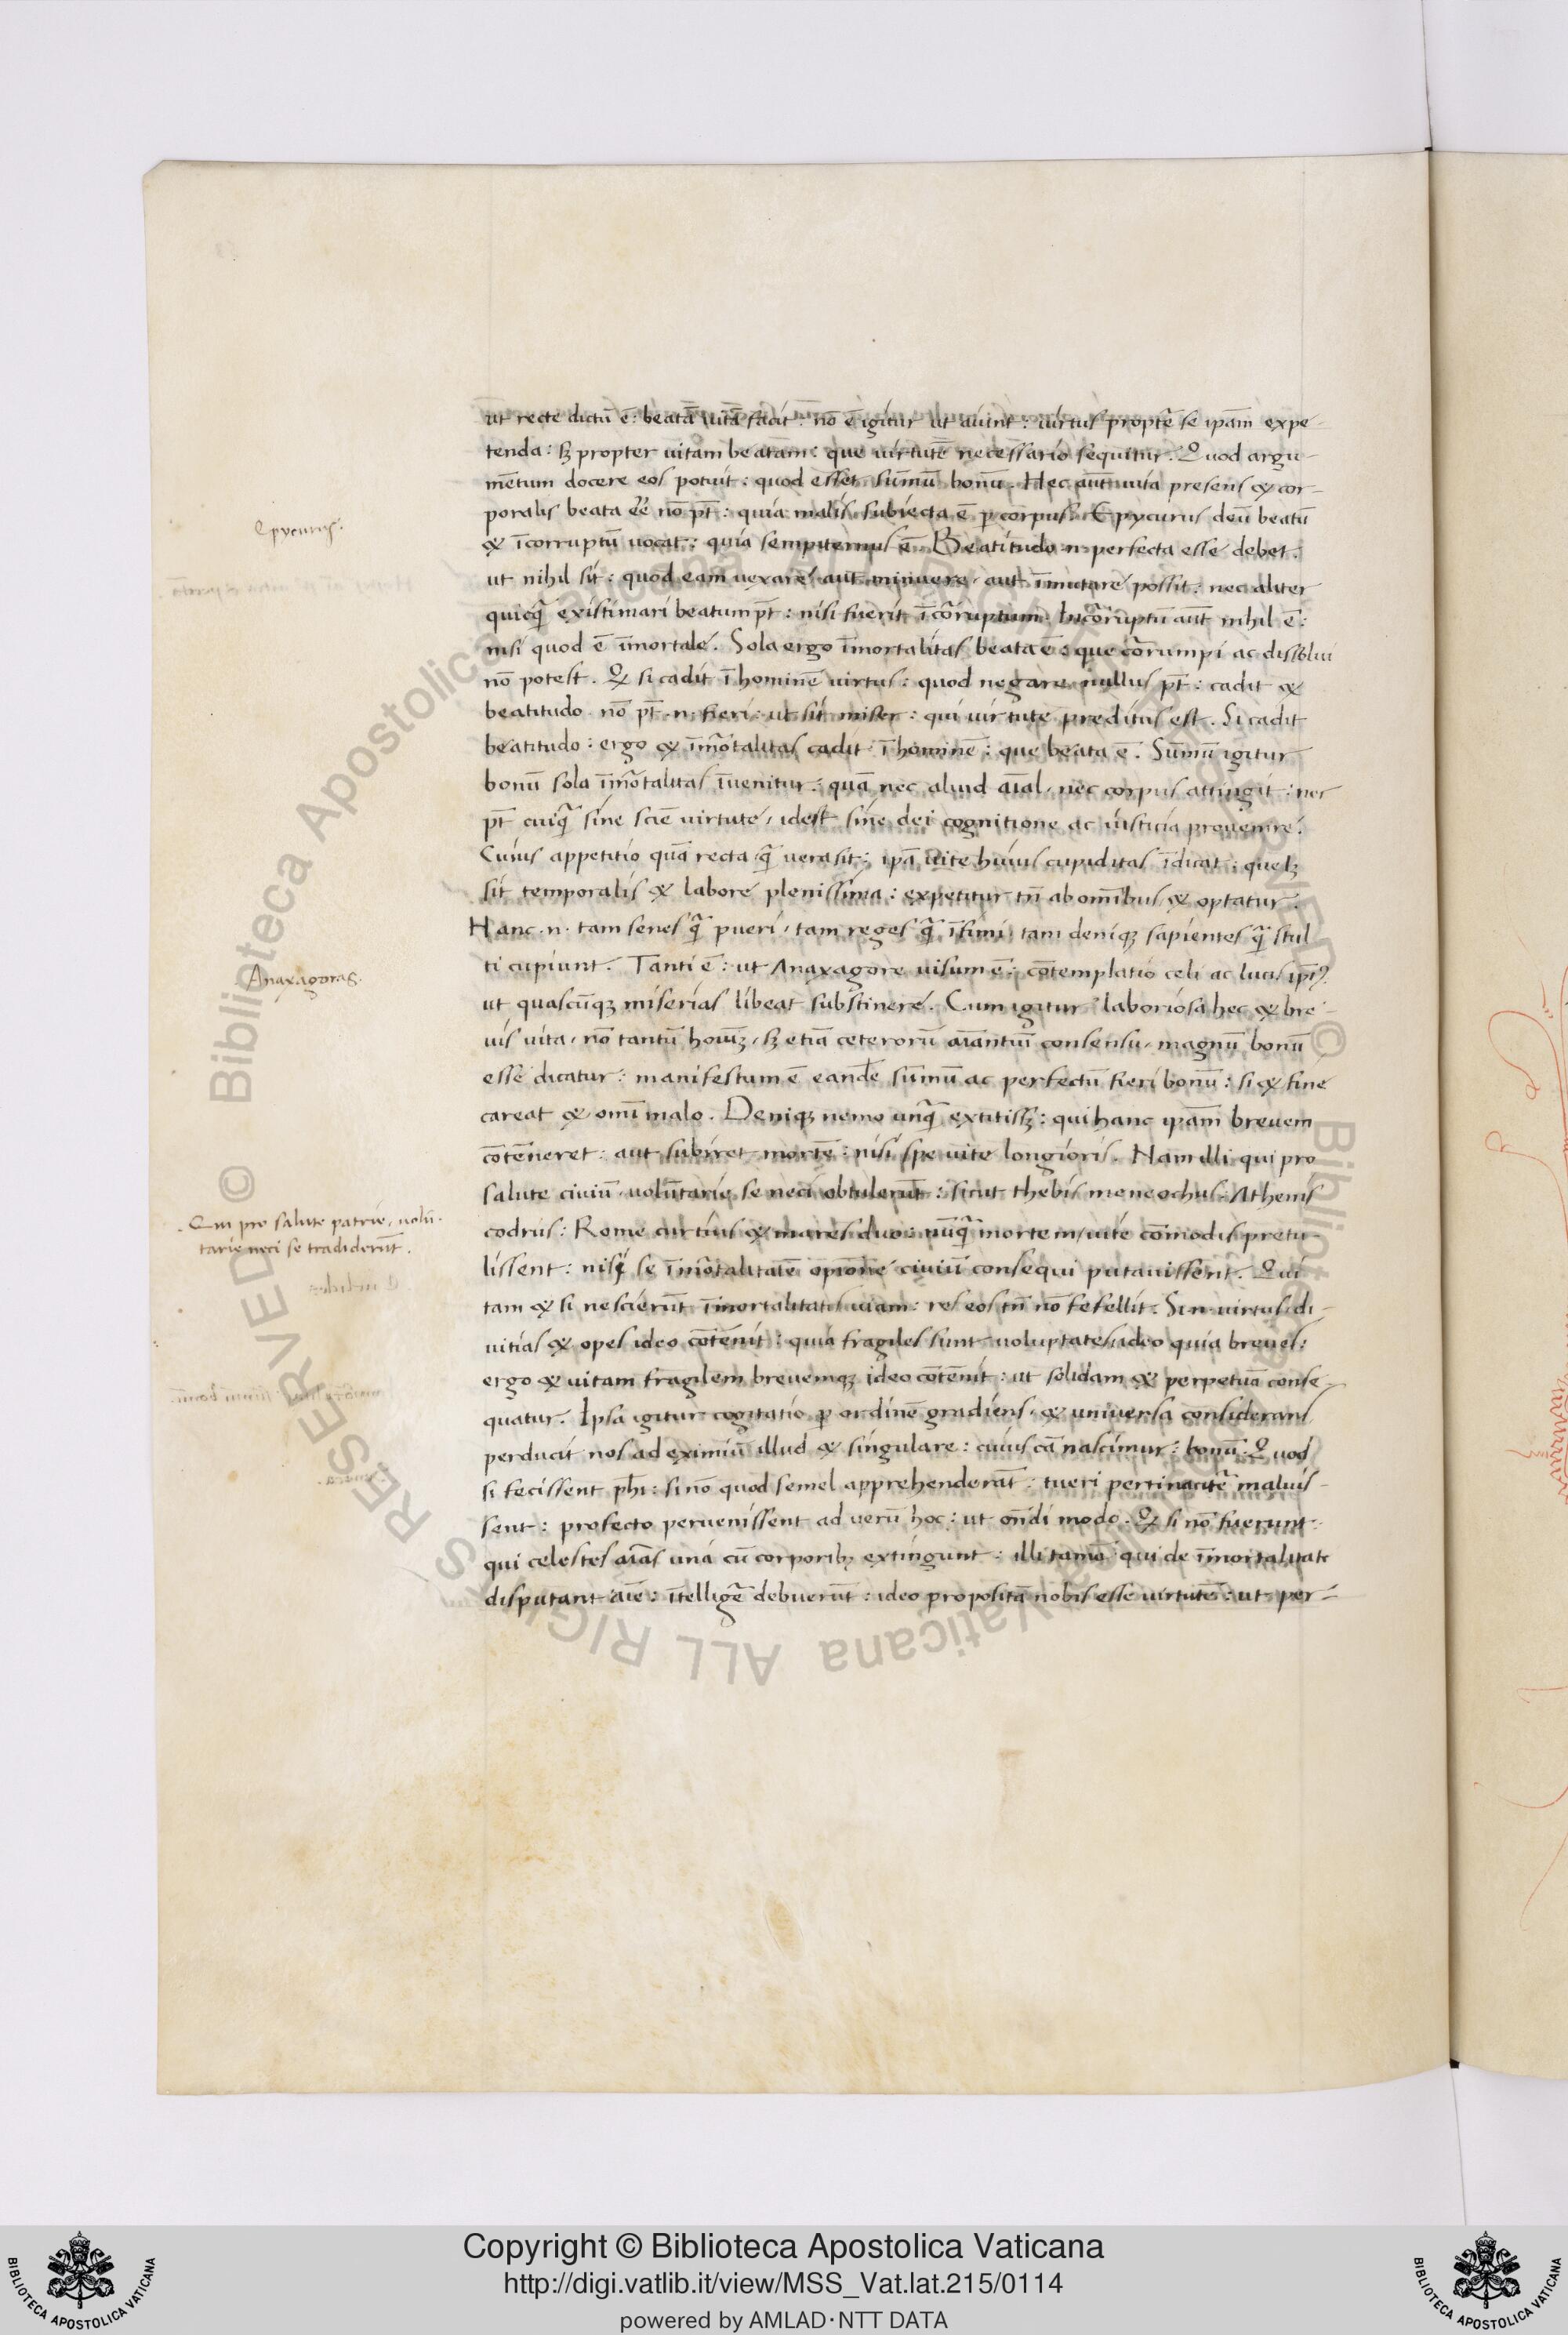 ut recte dictū ē: beatā uitā facit: nō ē igitur ut aiunt: uirtus proptē se ipām expe-
tenda: sꝫ propter uitam beatam: que uirtutē necessario sequitur. Quod argu-
mētum docere eos potuit: quod esset sūmū bonū. Hec aūt uita presens & cor-
poralis beata eē nō pt̄: quia malis subiecta ē ꝑ corpus. Epycurus deū beatū
& īcorruptū uocat: quia sempiternus ē. Beatitudo .n. perfecta esse debet:
ut nihil sit: quod eam uexare, aut minuere, aut īmutare possit: nec aliter
quicq̄ existimari beatum pt̄: nisi fuerit īcōruptum. Incōruptū aūt nihil ē:
nisi quod ē īmortale. Sola ergo īmortalitas beata ē: que cōrumpi ac dissolui
nō potest. Q si cadit ī hominē uirtus: quod negare nullus pt̄: cadit &
beatitudo. nō pt̄ .n. fieri: ut sit miser: qui uirtute preditus est. Si cadit
beatitudo: ergo & īmōtalitas cadit ī hominē: que beata ē. Sūmū igitur
bonū sola īmōtalitas īuenitur: quā nec aliud aīal, nec corpus attingit: nec
pt̄ cuiq̄ sine sciē uirtute, idest sine dei cognitione ac iusticia prouenire.
Cuius appetitio quā recta q̄ uera sit: ipā uite huius cupiditas īdicat: que lꝫ
sit temporalis & labore plenissima: expetitur tn̄ ab omībus, & optatur.
Hanc .n. tam senes q̄ pueri, tam reges q̄ īfimi, tam deniqꝫ sapientes q̄ stul
ti cupiunt. Tanti ē: ut Anaxagore uisum ē: cōtemplatio celi ac lucis ipīꝰ
ut quascūqꝫ miserias libeat substinere. Cum igitur laboriosa hec & bre-
uis uita, nō tantū hoīuꝫ, sꝫ etiā ceterorū aīantiū consensu, magnū bonū
esse dicatur: manifestum ē eandē sūmū ac perfectū fieri bonū: si & fine
careat & omī malo. Deniqꝫ nemo unq̄ extitissꝫ: qui hanc ipām breuem
cōtēneret: aut subiret mortē: nisi spe uite longioris. Nam illi qui pro
salute ciuiū uolūtarie se neci obtulerūt: sicut thebis meneochus: Athenis
codrus: Rome curtius & mures duo: nūq̄ mortem, uite cōmodis pretu
lissent: nisi se īmōtalitatē opiōne ciuiū consequi putauissent. Qui
tam & si nescierūt īmortalitatis uiam: res eos tn̄ nō fefellit. Si .n. uirtus di-
uitias & opes ideo cōtēnit: quia fragiles sunt: uoluptates ideo quia breues:
ergo & uitam fragilem breuemqꝫ ideo cōtēnit: ut solidam & perpetuā conse-
quatur. Ipsa igitur cogitatio ꝑ ordinē gradiens, & uniuersa considerans
perducit nos ad eximiū illud & singulare: cuius cā nascimur: bonū. Quod
si fecissent phī: si nō quod semel apprehenderāt: tueri pertinacitē maluis-
sent: profecto peruenissent ad uerū hoc: ut on̄di modo. Q si nō fuerunt
qui celestes aīas unā cū corporibꝫ extingunt: illi tamē qui de īmortalitate
disputant aīe: ītelligē debuerūt: ideo propositā nobis esse uirtutē: ut per-
Epycurus.
Anaxagoras.
Qui pro salute patrie, uolū-
tarie neci se tradiderūt.
Copyright © Biblioteca Apostolica Vaticana
http://digi.vatlib.it/view/MSS_Vat.lat.215/0114
powered by AMLAD·NTT DATA
BIBLIOTECA APOSTOLICA VATICANA
BIBLIOTECA APOSTOLICA VATICANA